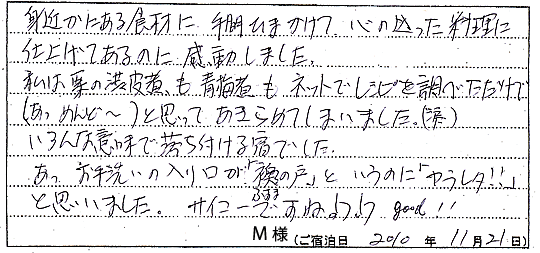 身近かにある食材に 手間ひまかけて 心の込った料理に
仕上げてあるのに 感動しました。
私は栗の渋皮煮も 青梅煮も ネットでレシピを調べただけで
(あっ めんど〜)と思って あきらめてしまいました。(涙)
いろんな意味で落ち付ける宿でした。
あっ お手洗いの入り口が「襖の戸」と いうのに「ヤラレタ!!」
ふすま
と思いました。 サイコーですねよ good!!
M 様 (ご宿泊日 2010 年 11月21日)